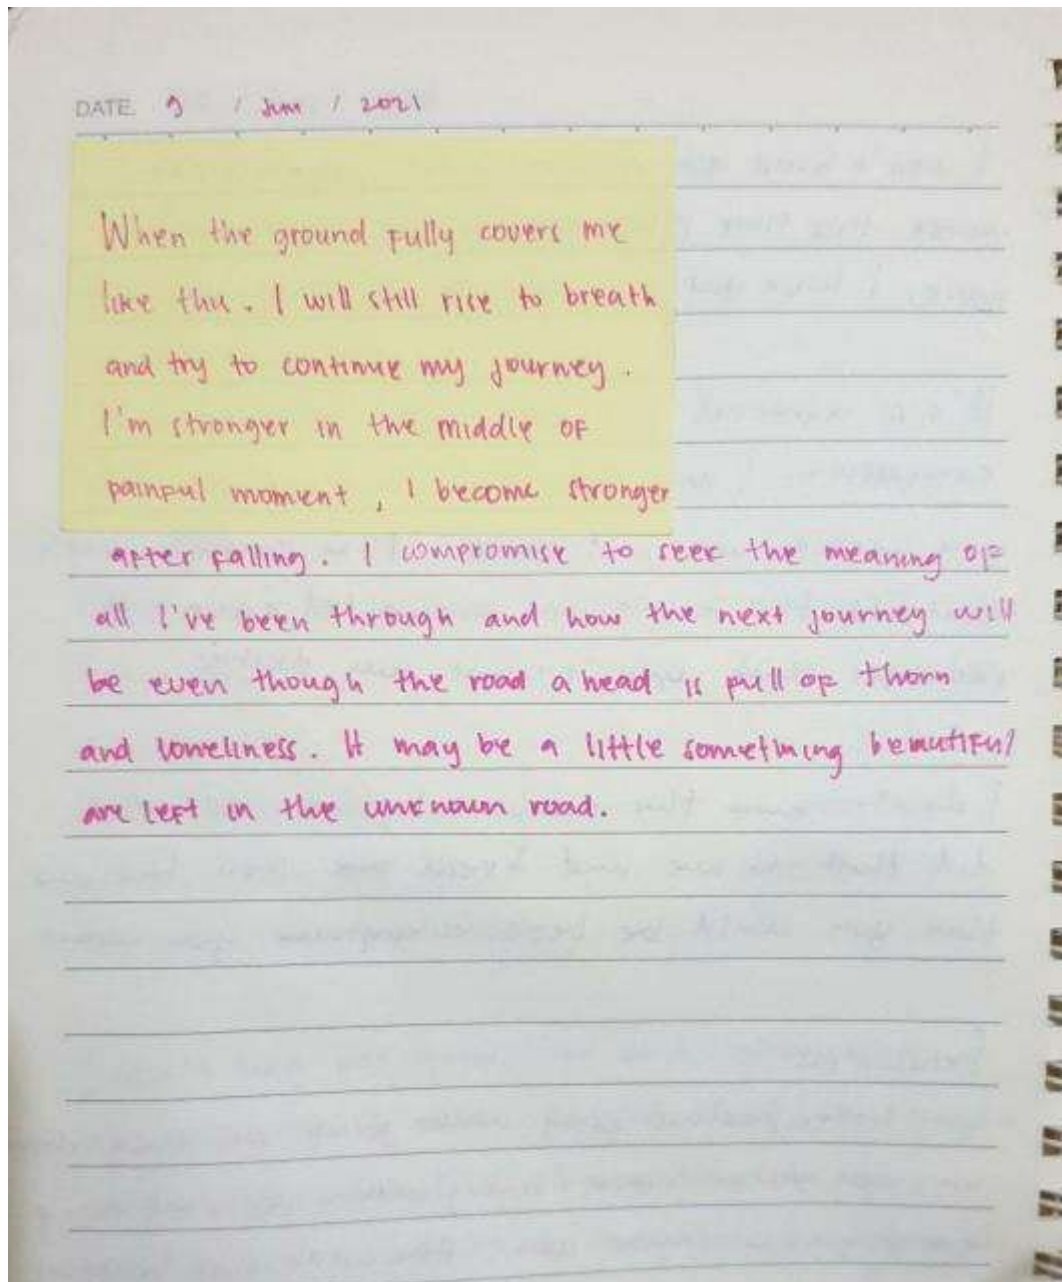 DATE. 9 / Jun / 2021
When the ground fully covers me
like this. I will still rise to breath
and try to continue my journey.
I'm stronger in the middle of
painful moment, I become stronger
after falling. I compromise to seek the meaning of
all I've been through and how the next journey will
be even though the road a head is full of thorn
and loneliness. It may be a little something beautiful
are left in the unknown road.